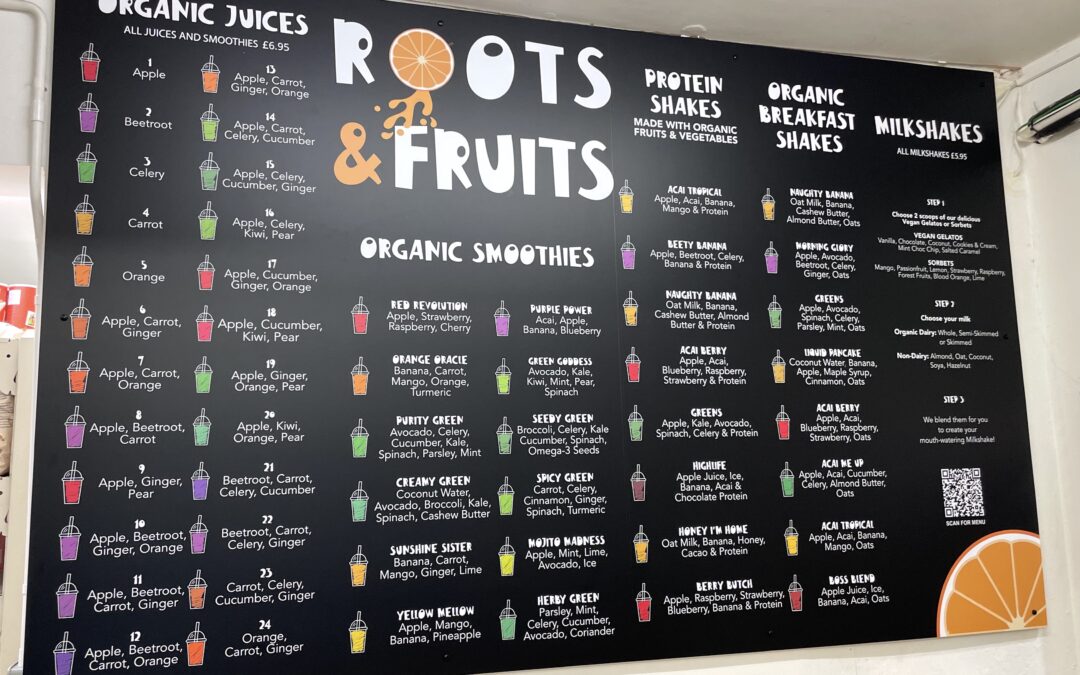 ORGANIC JUICES
ALL JUICES AND SMOOTHIES £6.95
1
Apple
2
Beetroot
3
Celery
4
Carrot
5
Orange
6
Apple, Carrot,
Ginger
7
Apple, Carrot,
Orange
8
Apple, Beetroot,
Carrot
9
Apple, Ginger,
Pear
10
Apple, Beetroot,
Ginger, Orange
11
Apple, Beetroot,
Carrot, Ginger
12
Apple, Beetroot,
Carrot, Orange
13
Apple, Carrot,
Ginger, Orange
14
Apple, Carrot,
Celery, Cucumber
15
Apple, Celery,
Cucumber, Ginger
16
Apple, Celery,
Kiwi, Pear
17
Apple, Cucumber,
Ginger, Orange
18
Apple, Cucumber,
Kiwi, Pear
19
Apple, Ginger,
Orange, Pear
20
Apple, Kiwi,
Orange, Pear
21
Beetroot, Carrot,
Celery, Cucumber
22
Beetroot, Carrot,
Celery, Ginger
23
Carrot, Celery,
Cucumber, Ginger
24
Orange,
Carrot, Ginger
ROOTS
& FRUITS
ORGANIC SMOOTHIES
RED REVOLUTION
Apple, Strawberry,
Raspberry, Cherry
ORANGE ORACLE
Banana, Carrot,
Mango, Orange,
Turmeric
PURITY GREEN
Avocado, Celery,
Cucumber, Kale,
Spinach, Parsley, Mint
CREAMY GREEN
Coconut Water,
Avocado, Broccoli, Kale,
Spinach, Cashew Butter
SUNSHINE SISTER
Banana, Carrot,
Mango, Ginger, Lime
YELLOW MELLOW
Apple, Mango,
Banana, Pineapple
PURPLE POWER
Acai, Apple,
Banana, Blueberry
GREEN GODDESS
Avocado, Kale,
Kiwi, Mint, Pear,
Spinach
SEEDY GREEN
Broccoli, Celery, Kale
Cucumber, Spinach,
Omega-3 Seeds
SPICY GREEN
Carrot, Celery,
Cinnamon, Ginger,
Spinach, Turmeric
MOJITO MADNESS
Apple, Mint, Lime,
Avocado, Ice
HERBY GREEN
Parsley, Mint,
Celery, Cucumber,
Avocado, Coriander
PROTEIN
SHAKES
MADE WITH ORGANIC
FRUITS & VEGETABLES
ACAI TROPICAL
Apple, Acai, Banana,
Mango & Protein
BEETY BANANA
Apple, Beetroot, Celery,
Banana & Protein
NAUGHTY BANANA
Oat Milk, Banana,
Cashew Butter, Almond
Butter & Protein
ACAI BERRY
Apple, Acai,
Blueberry, Raspberry,
Strawberry & Protein
GREENS
Apple, Kale, Avocado,
Spinach, Celery & Protein
HIGHLIFE
Apple Juice, Ice,
Banana, Acai &
Chocolate Protein
HONEY I'M HOME
Oat Milk, Banana, Honey,
Cacao & Protein
BERRY BUTCH
Apple, Raspberry, Strawberry,
Blueberry, Banana & Protein
ORGANIC
BREAKFAST
SHAKES
NAUGHTY BANANA
Oat Milk, Banana,
Cashew Butter,
Almond Butter, Oats
MORNING GLORY
Apple, Avocado,
Beetroot, Celery,
Ginger, Oats
GREENS
Apple, Avocado,
Spinach, Celery,
Parsley, Mint, Oats
LIQUID PANCAKE
Coconut Water, Banana,
Apple, Maple Syrup,
Cinnamon, Oats
ACAI BERRY
Apple, Acai,
Blueberry, Raspberry,
Strawberry, Oats
ACAI ME UP
Apple, Acai, Cucumber,
Celery, Almond Butter,
Oats
ACAI TROPICAL
Apple, Acai, Banana,
Mango, Oats
BOSS BLEND
Apple Juice, Ice,
Banana, Acai, Oats
MILKSHAKES
ALL MILKSHAKES £5.95
STEP 1
Choose 2 scoops of our delicious
Vegan Gelatos or Sorbets
VEGAN GELATOS
Vanilla, Chocolate, Coconut, Cookies & Cream,
Mint Choc Chip, Salted Caramel
SORBETS
Mango, Passionfruit, Lemon, Strawberry, Raspberry,
Forest Fruits, Blood Orange, Lime
STEP 2
Choose your milk
Organic Dairy: Whole, Semi-Skimmed
or Skimmed
Non-Dairy: Almond, Oat, Coconut,
Soya, Hazelnut
STEP 3
We blend them for you
to create your
mouth-watering Milkshake!
SCAN FOR MENU